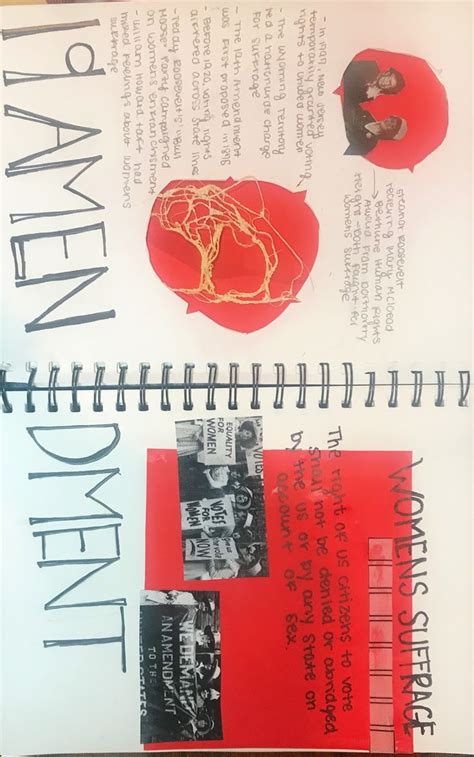 - In New Jersey
temporarily granted voting
rights to unwed women
- the Wyoming territory
led a nationwide change
for suffrage
- The 19th Amendment
was first proposed in 1878
- Before 1920 voting rights
differed across state lines
- Teddy Roosevelt's "Bull
Moose" Party campaigned
on womens enfranchisement
- William Howard Taft had
mixed feelings about womens
suffrage
Eleanor Roosevelt
receiving Mary Mcleod
Bethune Human Rights
Award from Dorothy
Height - both fought for
womens suffrage
19 AMENDMENT
WOMENS SUFFRAGE
The right of US citizens to vote
shall not be denied or abridged
by the US or by any State on
account of sex.
EQUALITY
FOR
WOMEN
VOTES
FOR
WOMEN
NOW
WE DEMAND
AN AMENDMENT
TO THE